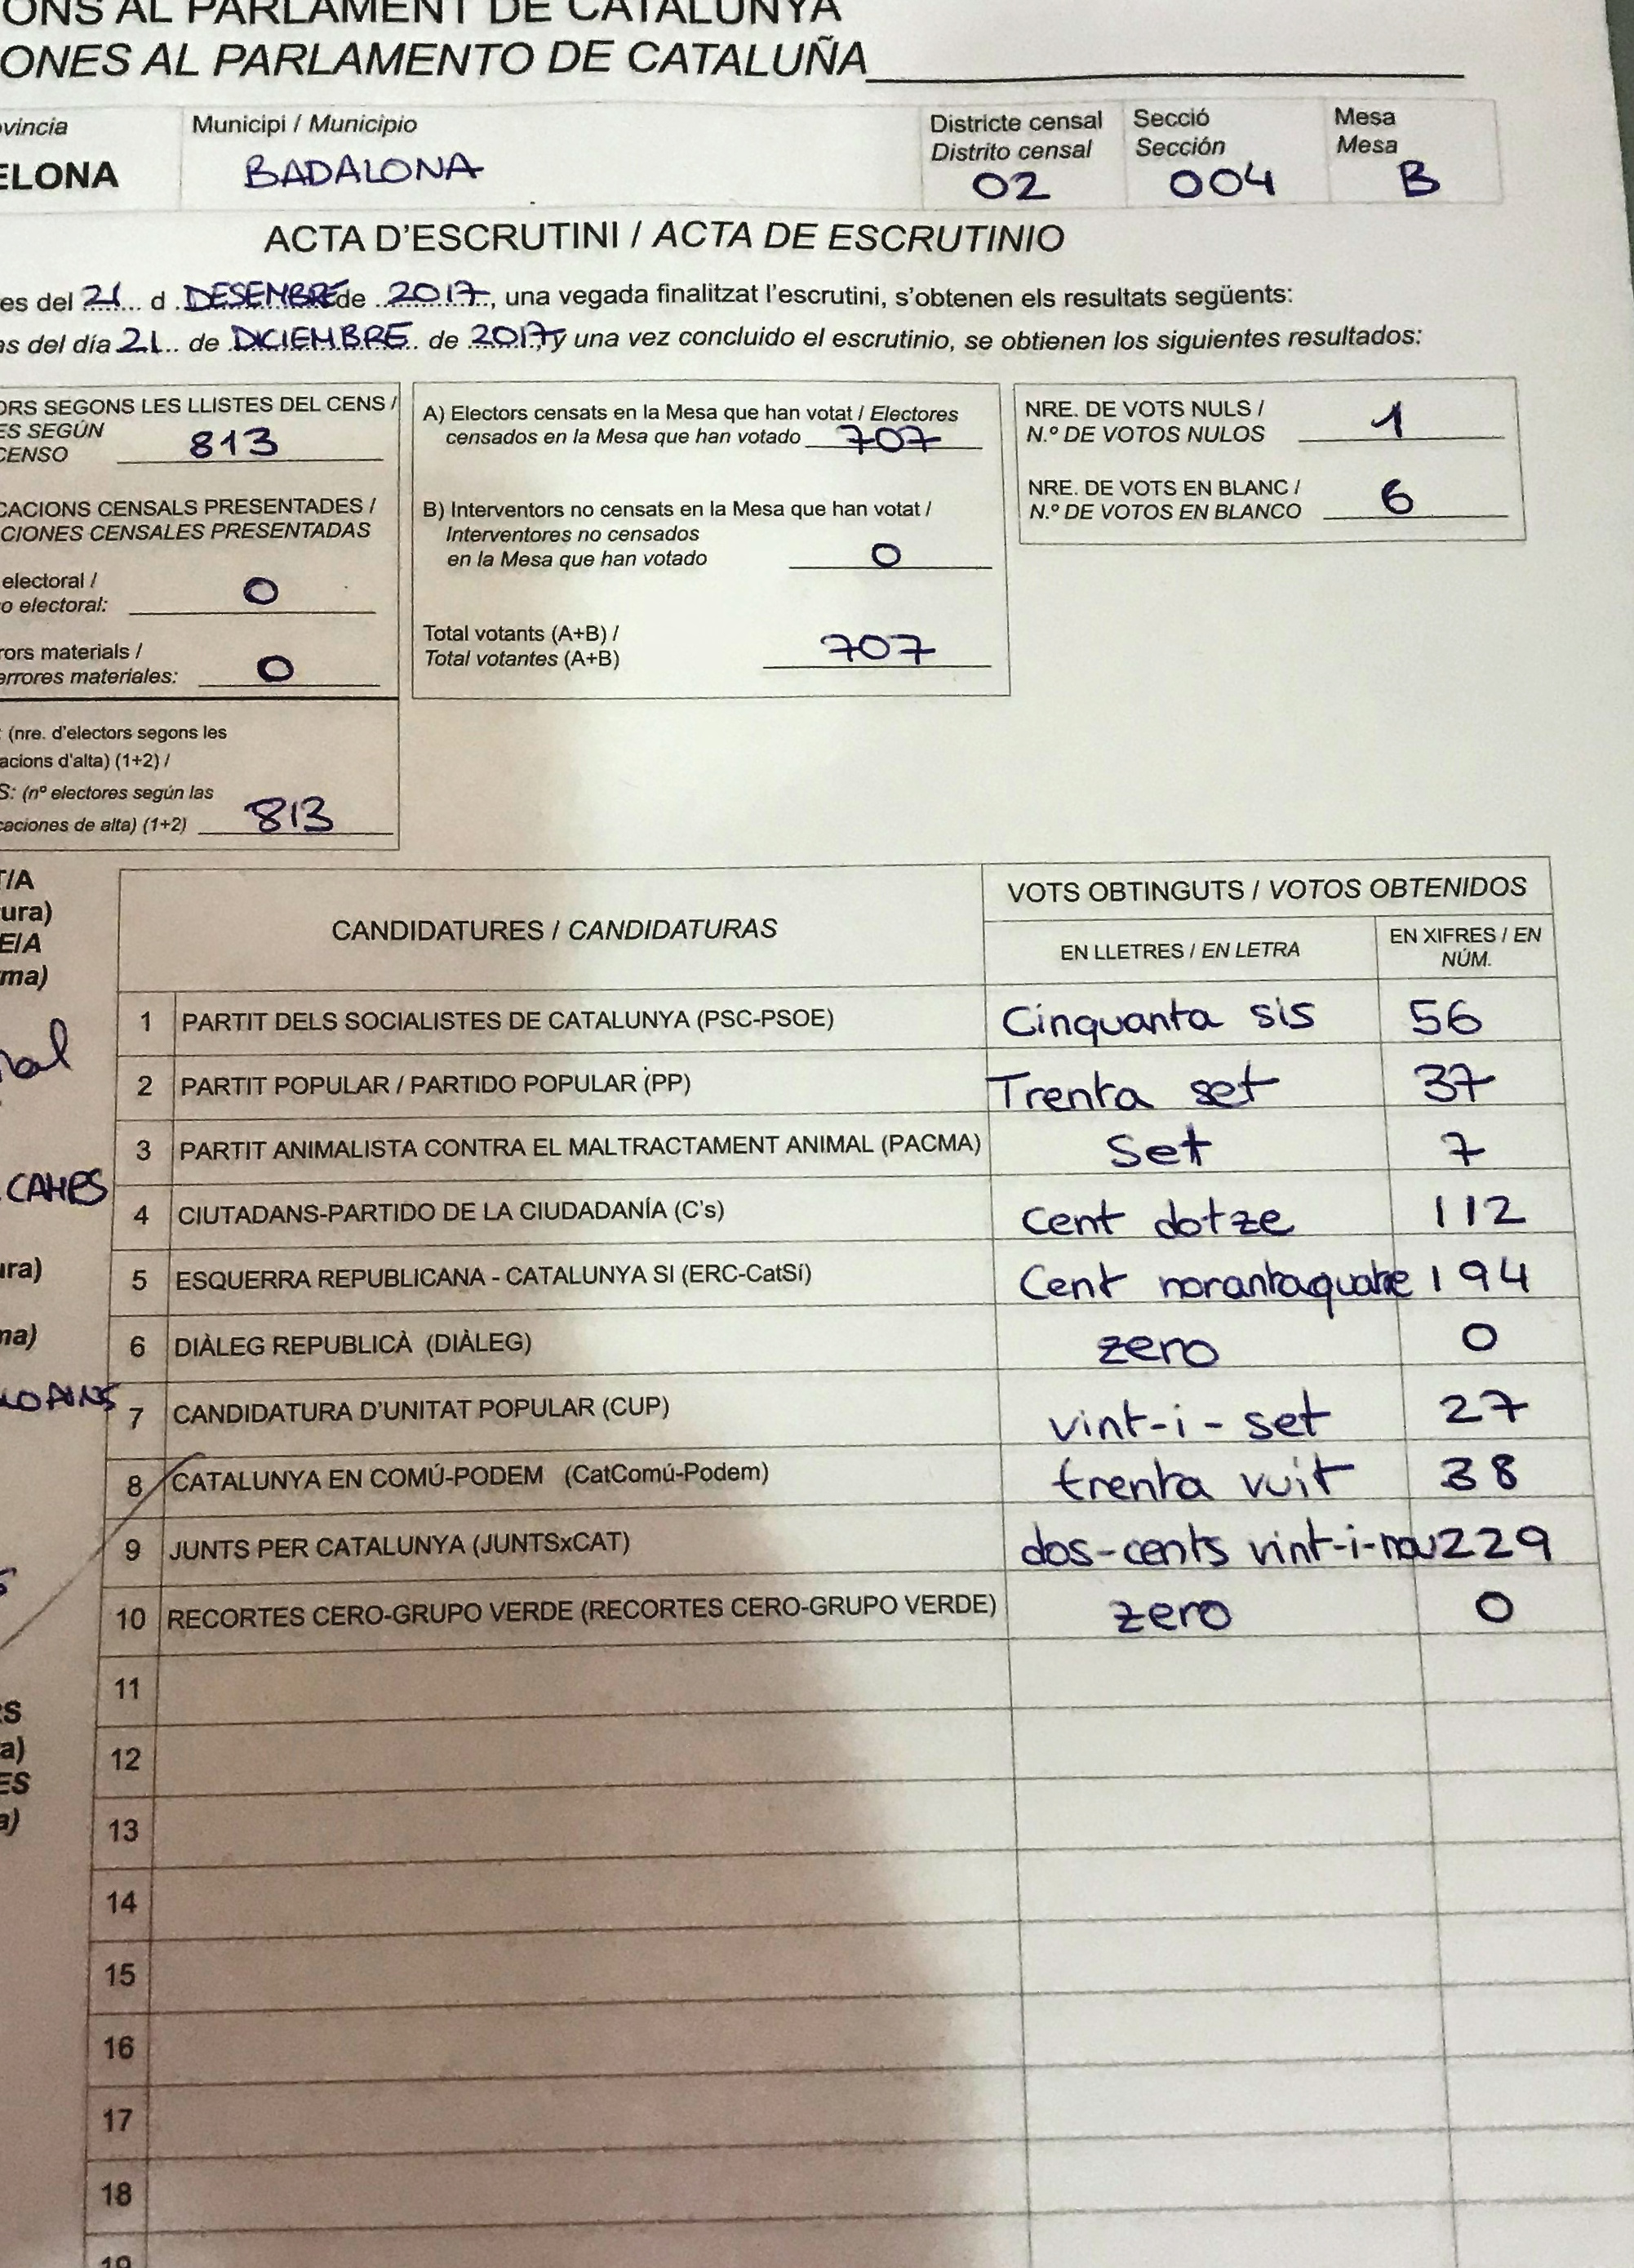 ONS AL PARLAMENT DE CATALUNYA
ONES AL PARLAMENTO DE CATALUÑA
ovincia
ELONA
Municipi / Municipio
BADALONA
Districte censal
Distrito censal
02
Secció
Sección
004
Mesa
Mesa
B
ACTA D'ESCRUTINI / ACTA DE ESCRUTINIO
es del 21 d DESEMBRE de 2017, una vegada finalitzat l'escrutini, s'obtenen els resultats següents:
as del día 21 de DICIEMBRE de 2017 y una vez concluido el escrutinio, se obtienen los siguientes resultados:
ORS SEGONS LES LLISTES DEL CENS /
ES SEGÚN
CENSO 813
CACIONS CENSALS PRESENTADES /
CIONES CENSALES PRESENTADAS
electoral /
o electoral: 0
rors materials /
errores materiales: 0
(nre. d'electors segons les
acions d'alta) (1+2) /
S: (nº electores según las
caciones de alta) (1+2) 813
A) Electors censats en la Mesa que han votat / Electores
censados en la Mesa que han votado 707
B) Interventors no censats en la Mesa que han votat /
Interventores no censados
en la Mesa que han votado 0
Total votants (A+B) /
Total votantes (A+B) 707
NRE. DE VOTS NULS /
N.º DE VOTOS NULOS 1
NRE. DE VOTS EN BLANC /
N.º DE VOTOS EN BLANCO 6
CANDIDATURES / CANDIDATURAS
VOTS OBTINGUTS / VOTOS OBTENIDOS
EN LLETRES / EN LETRA
EN XIFRES / EN
NÚM.
1 PARTIT DELS SOCIALISTES DE CATALUNYA (PSC-PSOE) Cinquanta sis 56
2 PARTIT POPULAR / PARTIDO POPULAR (PP) Trenta set 37
3 PARTIT ANIMALISTA CONTRA EL MALTRACTAMENT ANIMAL (PACMA) Set 7
4 CIUTADANS-PARTIDO DE LA CIUDADANÍA (C's) Cent dotze 112
5 ESQUERRA REPUBLICANA - CATALUNYA SI (ERC-CatSí) Cent norantaquatre 194
6 DIÀLEG REPUBLICÀ (DIÀLEG) zero 0
7 CANDIDATURA D'UNITAT POPULAR (CUP) vint-i-set 27
8 CATALUNYA EN COMÚ-PODEM (CatComú-Podem) trenta vuit 38
9 JUNTS PER CATALUNYA (JUNTSxCAT) dos-cents vint-i-nou 229
10 RECORTES CERO-GRUPO VERDE (RECORTES CERO-GRUPO VERDE) zero 0
11
12
13
14
15
16
17
18
19
TIA
ura)
EIA
ma)
ura)
ma)
ES
a)
ES
a)